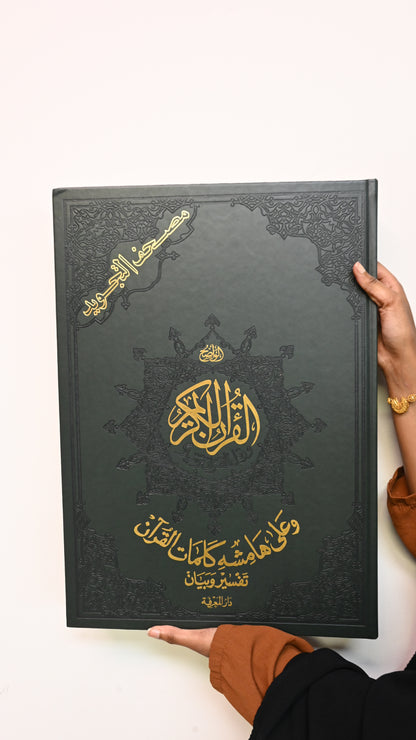 مصحف التجويد
الواضح
القرآن الكريم
وعلى هامشه كلمات القرآن
تفسير وبيان
دار المعرفة